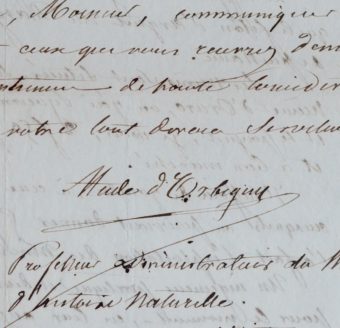 Monsieur, communiquer
ceux que vous recevrez
de haute Considér
votre tout dévoué Serviteur
Alcide d'Orbigny
Professeur administrateur du M
d'histoire Naturelle.